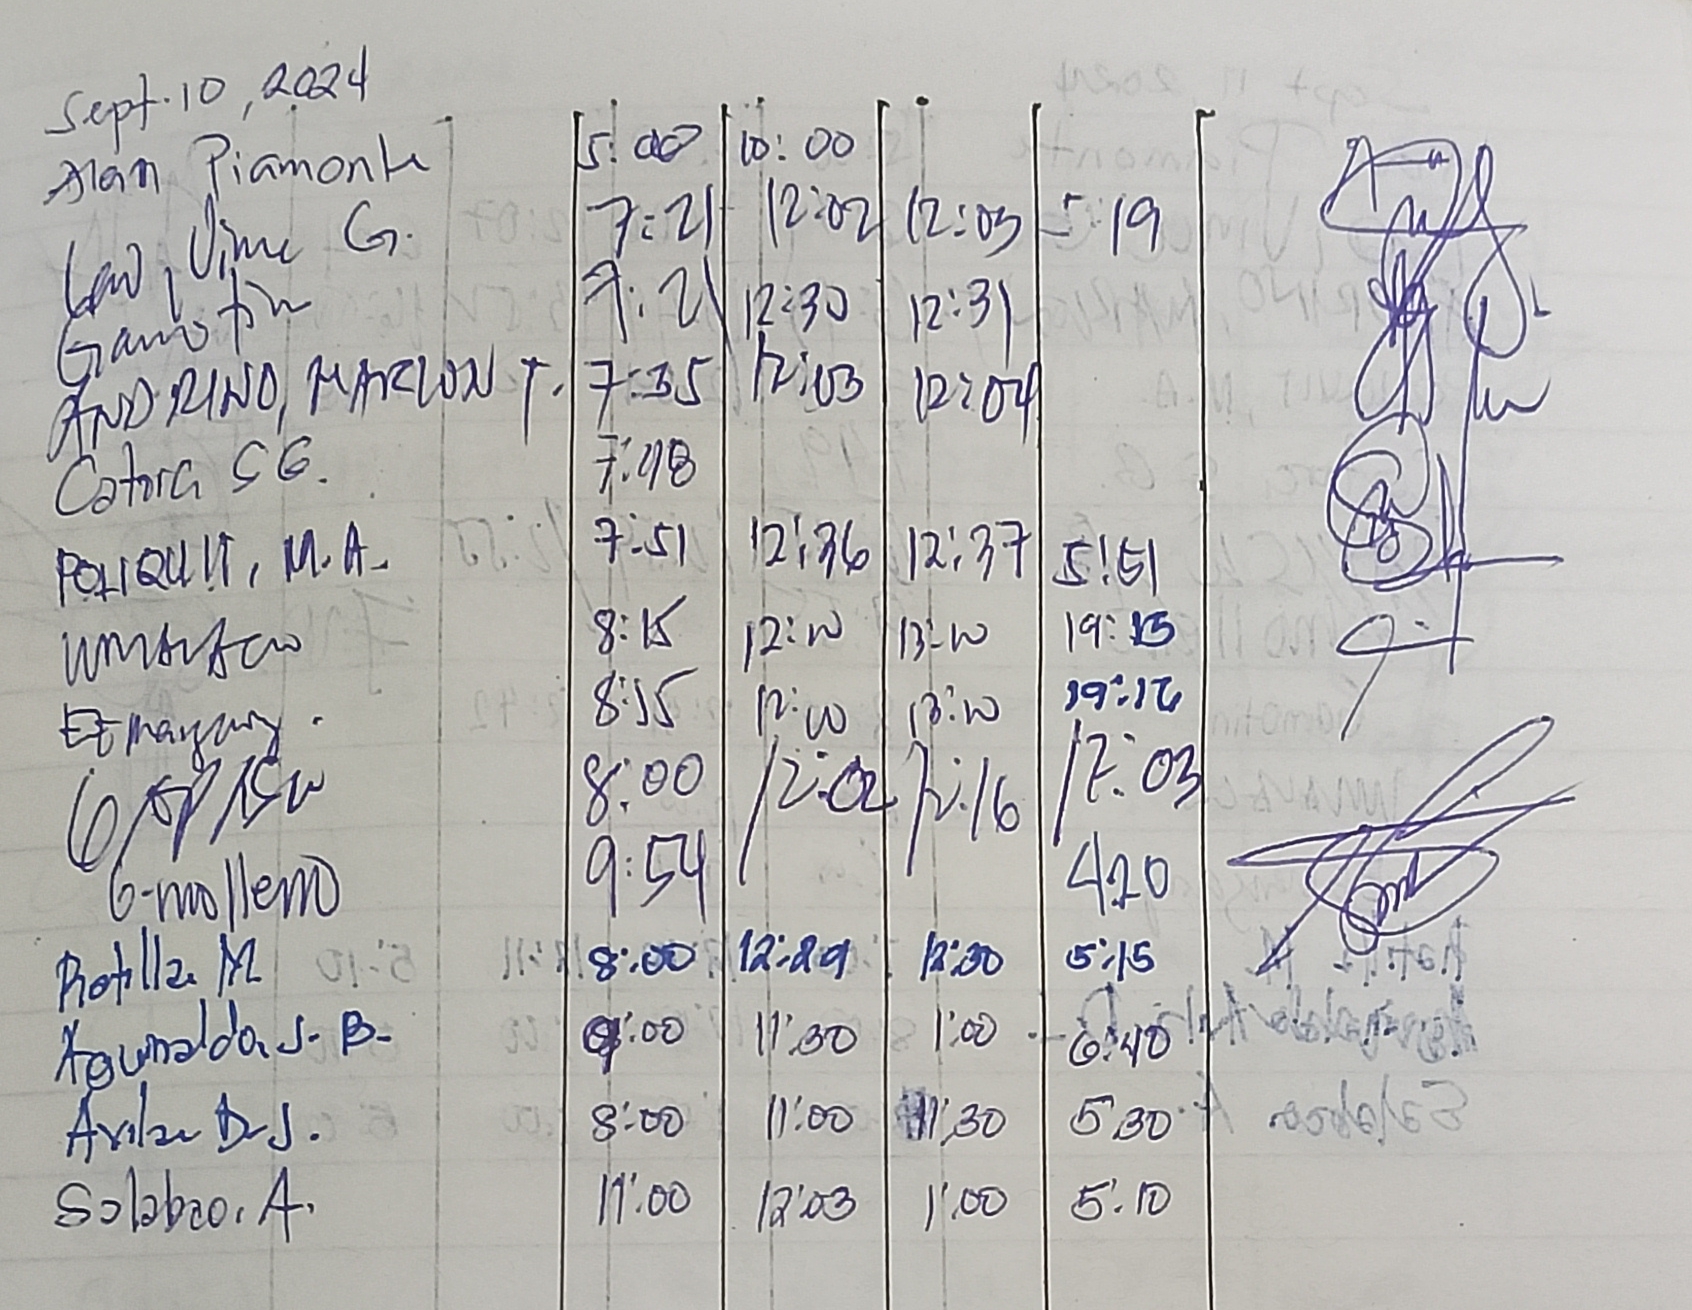 Sept. 10, 2024
Alan Piamonte 5:00 10:00
Vime G. 7:21 12:02 12:03 5:19
Gamotin 7:21 12:30 12:31
ANDRINO, MARLON T. 7:35 12:03 12:04
Catora S G. 7:48
POLIQUIT, M.A. 7:51 12:36 12:37 5:51
8:15 12:10 13:10 19:15
8:15 12:10 13:10 19:16
8:00 12:02 12:16 17:03
G-molleno 9:54 4:20
Rotilla M 8:00 12:29 12:30 5:15
Aguinaldo, J. B. 11:30 1:00 6:40
Avila D.J. 8:00 11:00 11:30 5:30
Salabao. A. 11:00 12:03 1:00 5:10